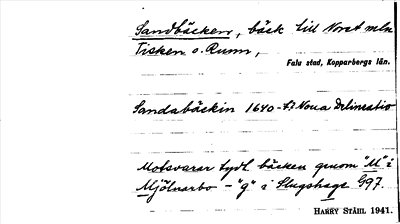 Sandbäcken, bäck till Norst mln
Tisken o. Runn,
Falu stad, Kopparbergs län.
Sandabäckin 1640-t. Noua Delineatio
Motsvarar tydl. bäcken genom "M" i
Mjölnarbo - "g" i Slugshage G97.
HARRY STÅHL 1941.